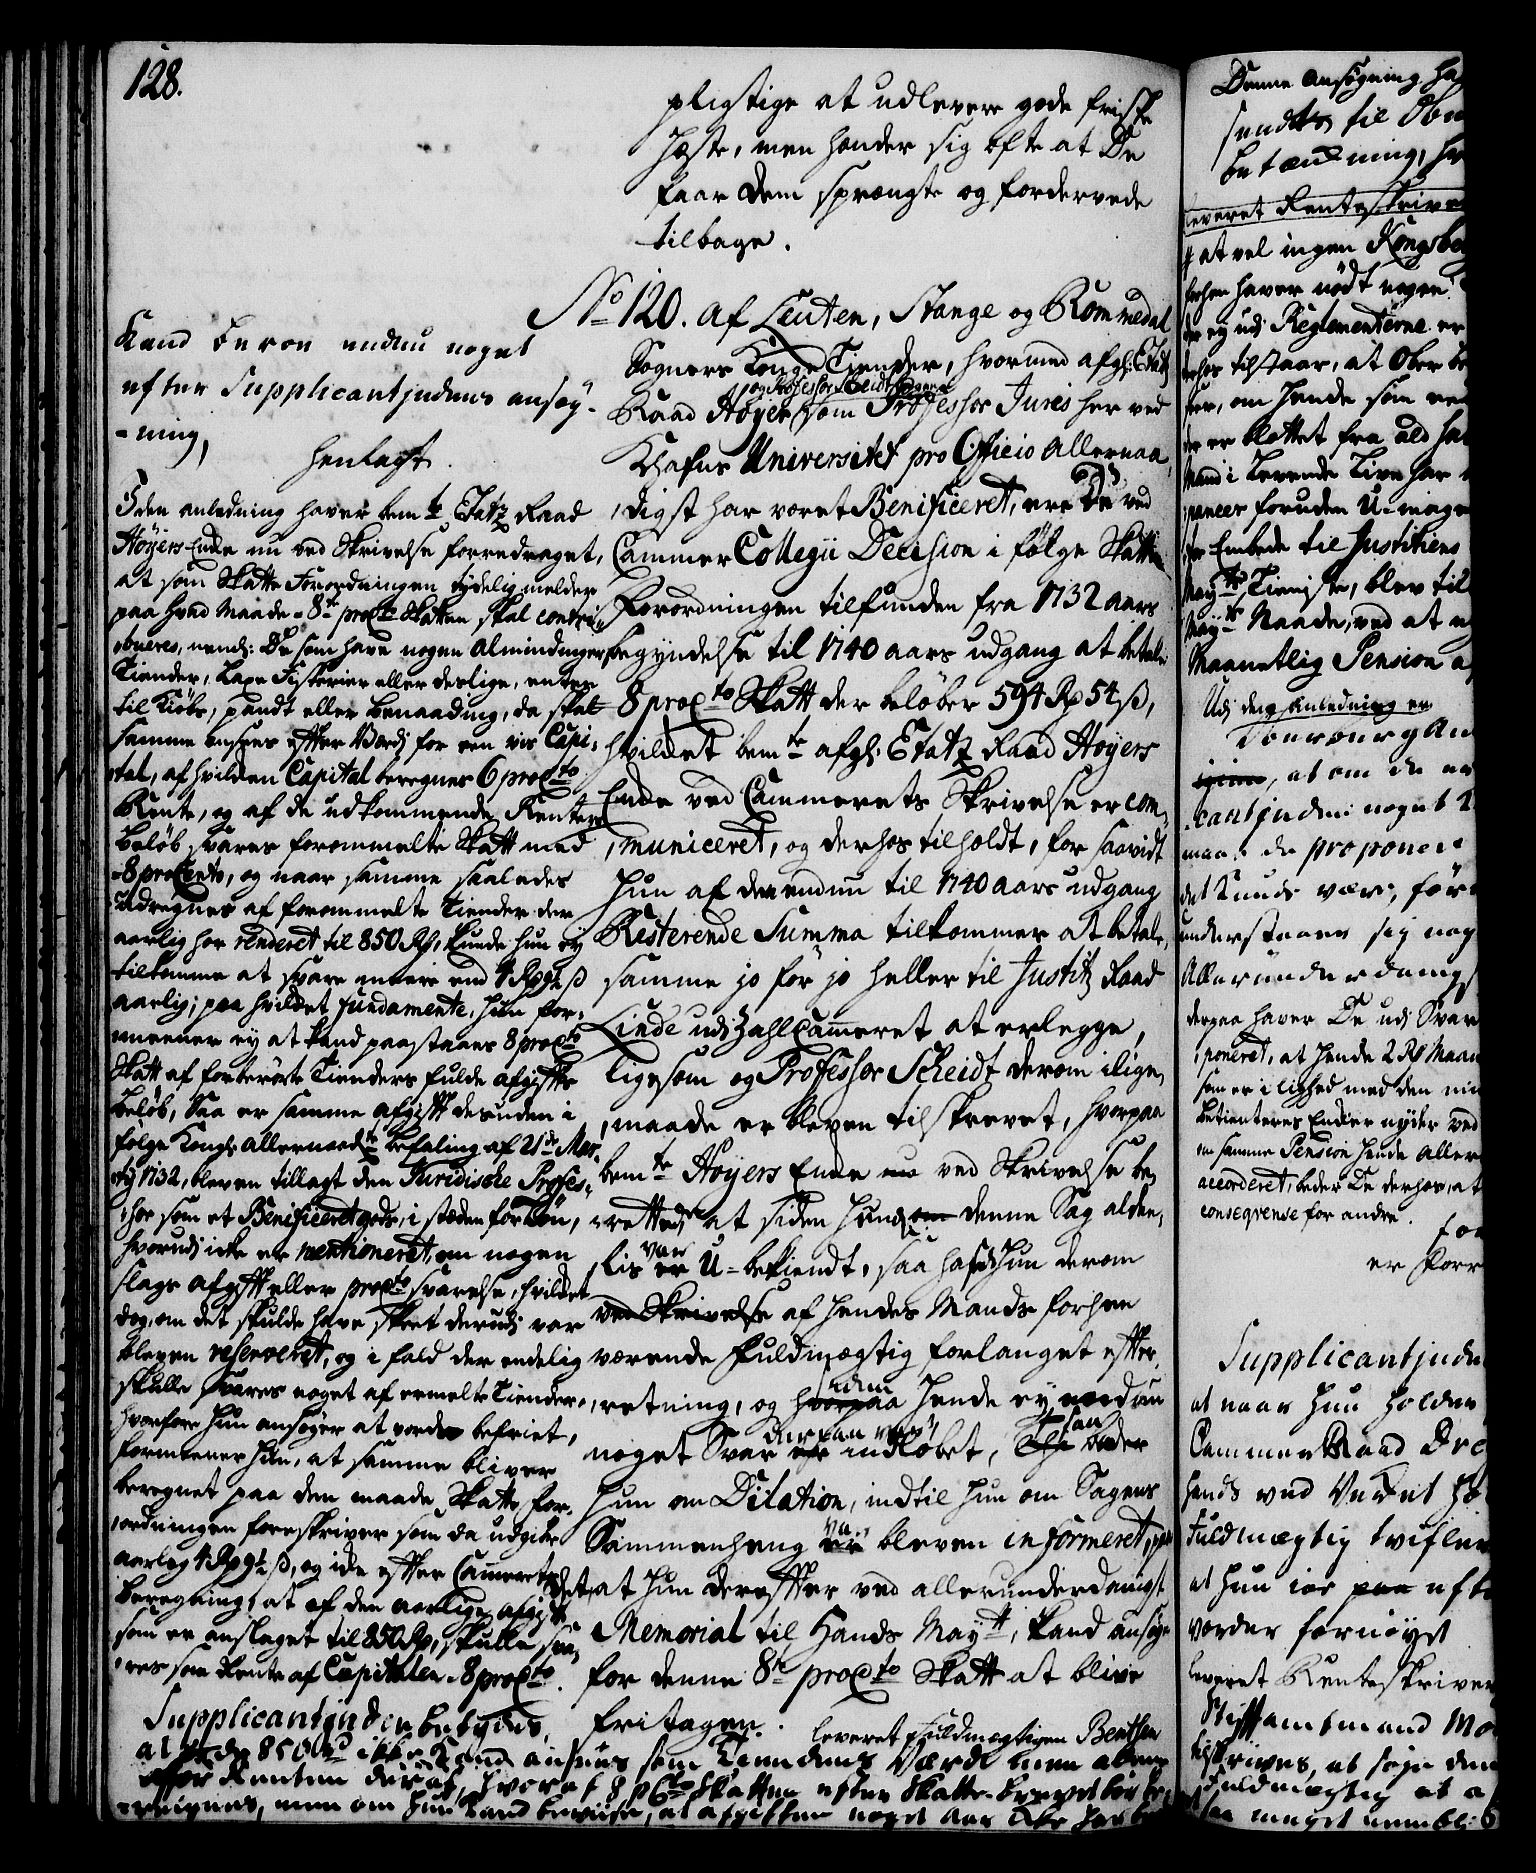 128.
pligtige at udlevere gode friske
Hæste, men hender sig ofte at De
faar dem sprængte og fordervede
tilbage.
No 120. af Leuten, Stange og Rommedal
Sogners Konge Tiender, hvormed afg: Etatz
og Professor Scheidt
Raad Høyer som Professor Juris her ved
Khafns Universitet pro Officio Allernaa,
digst har været Benificeret, ere De ved
Cammer Collegii Decision i følge Skatte
Forordningen tilfunden fra 1732 aars
begyndelse til 1740 aars udgang at betale
8 proCto Skatt der beløber 594 Rd 54 ß,
hvilcket bemte afg: Etatz Raad Høyers
Enke ved Cammerets Skrivelse er com,
municeret, og derhos tilholdt, for saavidt
hun af den endnu til 1740 aars udgang
Resterende Summa tilkommer at betale,
samme jo før jo heller til Justitz Raad
Linde udi Zahl Cammeret at erlegge,
ligesom og Professor Scheidt derom i lige,
maade er bleven tilskrevet, hvorpaa
bemte Høyers Enke nu ved Skrivelse be,
retted at siden hun denne Sag alde,
var
lis er U-bekiendt, saa hafde hun derom
ved Skrivelse af hendes Mands forhen
værende Fuldmægtig forlanget efter,
retning, og hvorpaa hende ey endnu
noget Svar indløbet, beder
hun om Dilation, indtil hun om Sagens
Sammenheng er bleven informeret,
at hun derefter ved allerunderdanigst
Memorial til Hands Maytt, kand ansøge
for denne 8te proCto Skatt at blive
fritagen.
leveret Fuldmægtigen Benthen
Kand beroe endnu noget
efter Supplicantindens ansøg-
-ning,
henlagt.
I den anledning haver bemte Etatz Raad
Høyers Enke nu ved Skrivelse forredraget,
at som Skatte Forordningen tydelig melder
paa hvad Maade 8te proCto Skatten skal contri,
bueres, nemlig: De som have nogen Almindinger,
Tiender, Laxe Fiskerier eller deslige, enten
til Kiøbs, pandt eller benaading, da skal
samme ansees efter Værdi for een vis Capi,
tal, af hvilcken Capital beregnes 6 proCto
Rente, og af de udkommende Renters
beløb svares forommelte Skatt med
8 proCento, og naar samme saaledes
udregnes af forommelte Tiender der
aarlig har renderet til 850 Rd, kunde hun ey
tilkomme at svare meere end 4 Rd 9½ ß
aarlig; paa hvilcket fundamente, hun for,
meener ey at kand paastaaes 8 proCto
Skatt af forberørte Tienders fulde afgifts
beløb, Saa er samme afgift desuden i
følge Kongl: allernaadte befaling af 21de Mar,
tij 1732, bleven tillagt den Juridiske Profes,
sor som et Benificeret gods, i stæden for Løn,
hvorudi icke er mentioneret, om nogen
slags afgift eller proCto svarelse, hvilcket
dog, om det skulde have skeet derudi var
bleven reserveret, og i fald der endelig
skulle svares noget af ermelte Tiender,
hvorfore hun ansøger at vorde befriet,
formeener hun, at samme bliver
beregnet paa den maade Skatte for,
ordningen foreskriver som da udgiør
aarlig 4 Rd 9½ ß, og icke efter Cammerets
beregning, at af den aarlige afgift
som er anslaget til 850 Rd, skulle sva,
res som Rente af Capitalen 8 proCto.
Supplicantinden betydes,
at de 850 Rd icke kand ansees som Tiendens Værdi men
for Renten deraf, hvoraf 8 pCto Skatten efter Skatte-
reignes, men om hun kand beviise, at afgiften noget aar icke har
Denne Ansøgning
sendes til
betænkning,
leveret Renteskriver
at vel ingen
forhen haver nødt nogen
der ey udi Reglementerne er
derhos tilstaar, at Ober
, om hende som
er blottet fra ald
Mand i Levende Live har
foruden U-
Embede til Justitiens
Maytts Tieniste, blev til
Maytts Naade, ved at
Maanetlig Pension
Udi den Anledning er
, at om de
cantinden noget
maa de proponere
det kunde være, før
understaaer sig
Allerunderdanigst
derpaa haver De udi Svar
poneret, at hende 2 Rd Maan
som er i lighed med den
betienteres Encker nyder ved
samme Pension hende aller
accorderet, beder De derhos, at
conseqvense for andre.
for
er
Supplicantinden
at naar hun holder
Cammer Raad
hends ved
Fuldmægtig tvifler
at hun jo
vorder fornøyet
leveret Renteskriver
Stiftamtmand
tilskrives, at
Fuldmægtig at